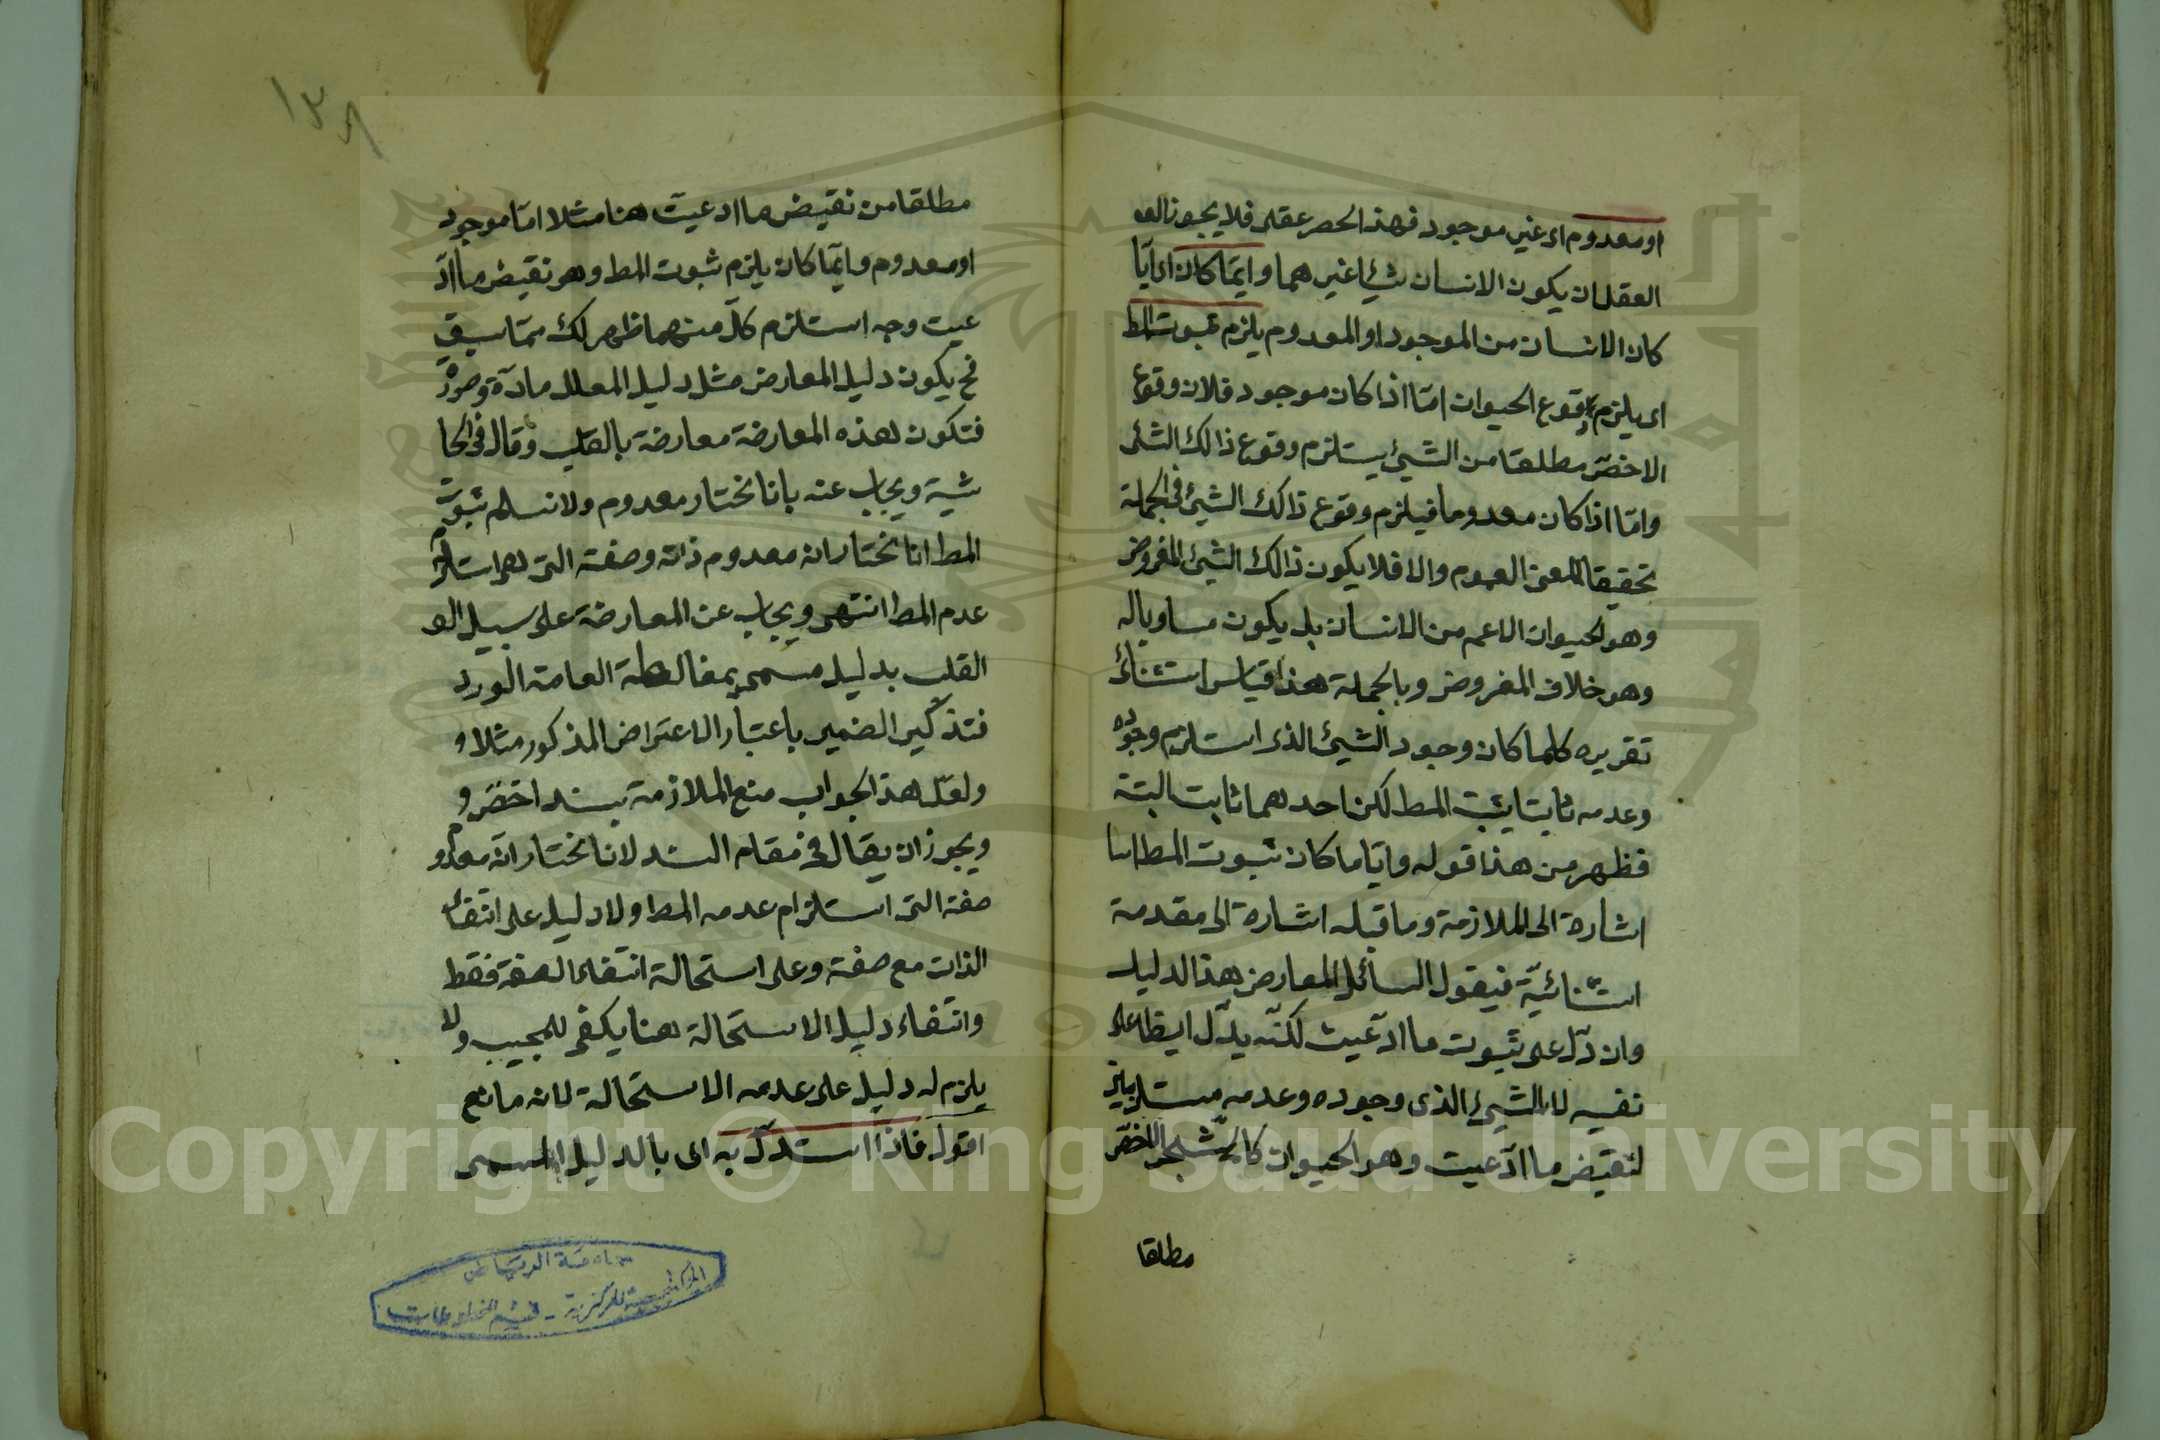 او معدوم اى غير موجود فهذا الحصر عقلى فلا يجوز الع
العقل ان يكون الانسان شيئا غير هما وايّما كان اى ايّا
كان الانسان من الموجود او المعدوم يلزم ثبوت المط
اى يلزم وقوع الحيوان امّا اذا كان موجود فلان وقوع
الاخصّ مطلقا من الشيئ يستلزم وقوع ذالك الشئ
وامّا اذا كان معدوما فيلزم وقوع ذالك الشيئ فى الجملة
تحقيقا لمعنى العموم والا فلا يكون ذالك الشيئ المفروض
وهو الحيوان الاعم من الانسان بل يكون مساويا له
وهو خلاف المفروض وبالجملة هذا قياس استثنائى
تقريره كلما كان وجود الشيئ الذى استلزم وجوده
وعدمه ثابتا يثبت المط لكن احدهما ثابت البتة
فظهر من هذا قوله وايّا ما كان ثبوت المط
اشارة الى الملازمة وما قبله اشارة الى مقدمة
استثنائيّة فيقول السائل المعارض هذا الدليل
وان دلّ على ثبوت ما ادّعيت لكنّه يدّل ايضا على
نفيه لان الشيئ الذى وجوده وعدمه مستلزمين
لنقيض ما ادّعيت وهو الحيوان كالشجر الاخصّ
مطلقا
١٣٨
مطلقا من نقيض ما ادعيت هنا مثلا امّا موجود
او معدوم وايّما كان يلزم ثبوت المط وهو نقيض ما ادّ
عيت وجه استلزم كلّ منهما ظهر لك ممّا سبق
فح يكون دليل المعارض مثل دليل المعلل مادّة وصورة
فتكون هذه المعارضة معارضة بالقلب وقال فى الحا
شية ويجاب عنه بانا نختار معدوم ولا نسلم ثبوت
المط انا نختار انه معدوم ذاته وصفته التى هى استلزم
عدم المط انتهى ويجاب عن المعارضة على سبيل الو
القلب بدليل مسمى بمغالطة العامة الورد
فتذكير الضمير باعتبار الاعتراض المذكور مثلا و
ولعلّ هذ الجواب منع الملازمة بسند اخصّ و
ويجوز ان يقال فى مقام السند لانا نختار انه معدوم
صفة التى استلزام عدمه المط ولا دليل على انتفاء
الذات مع صفته وعلى استحالة انتفاء الصفة فقط
وانتفاء دليل الاستحالة هنا يكفى للمجيب ولا
يلزم له دليل على عدمه الاستحالة لانه مانع
اقول فاذا استدلّ به اى بالدليل المسمى
جامعة الرياض
المكتبة المركزية - قسم المخطوطات
Copyright © King Saud University